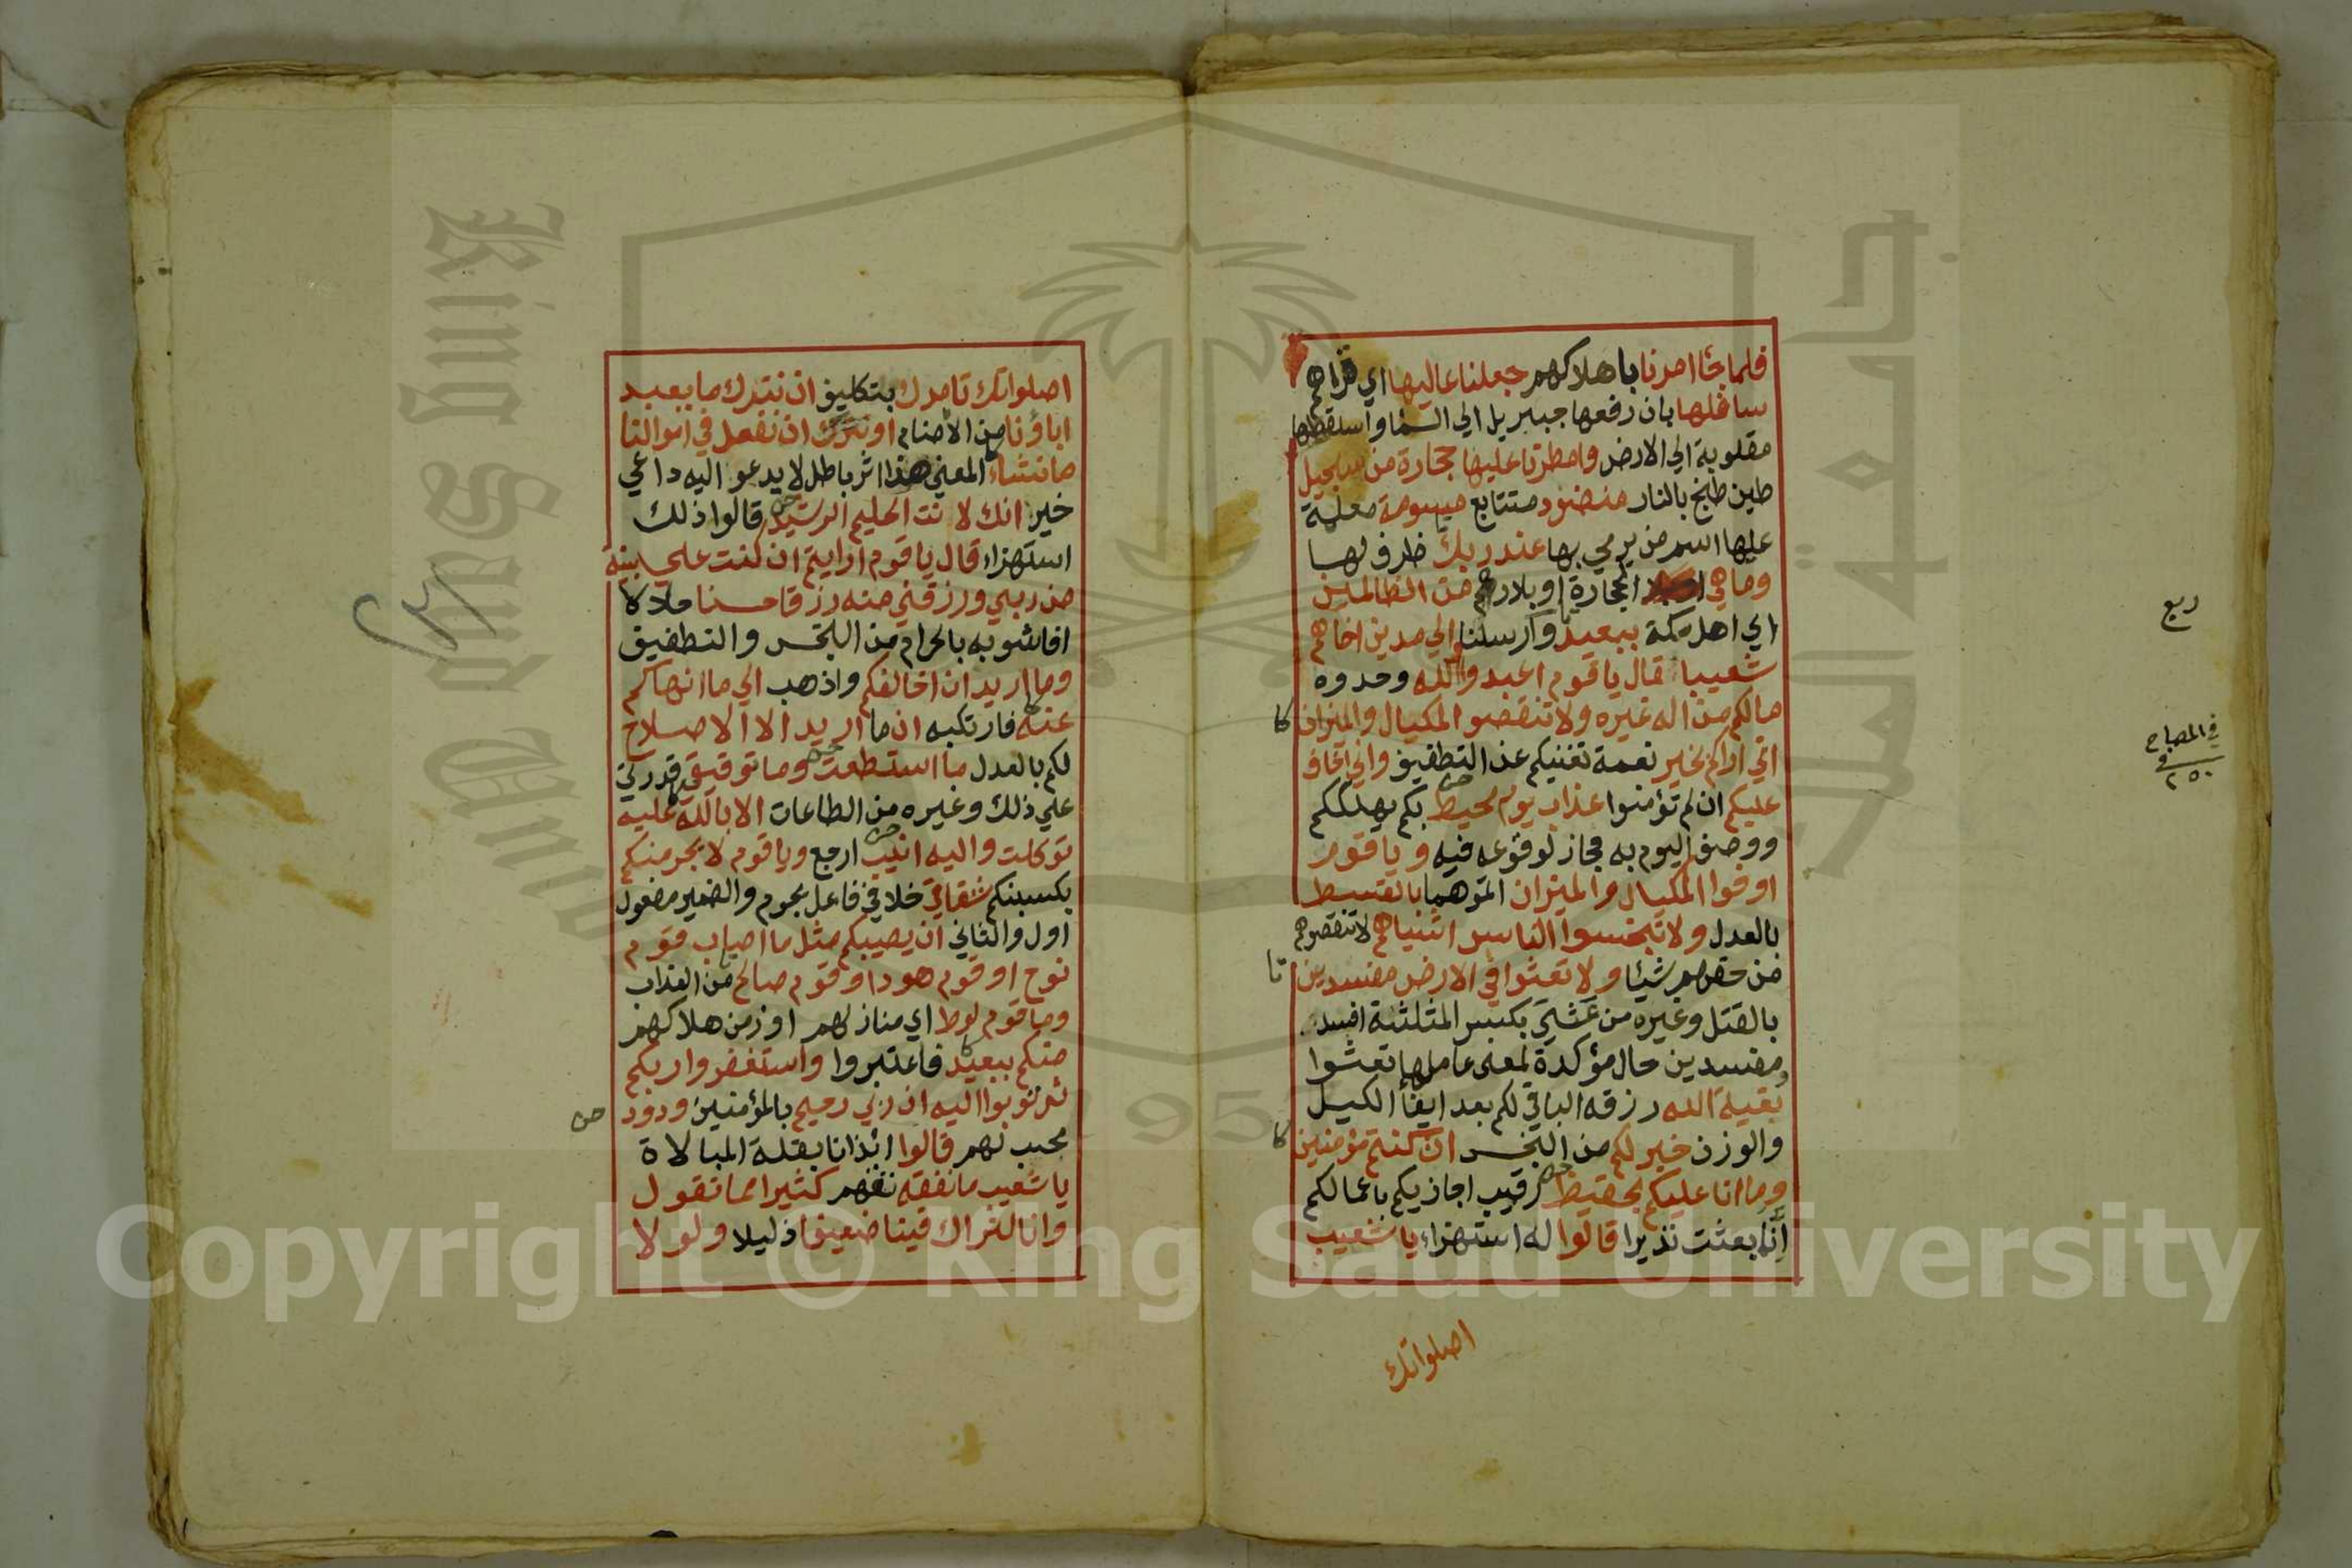 فلما جاء امرنا باهلاكهم جعلنا عاليها اي قراهم
سافلها بان رفعها جبريل الي السما واسقطها
مقلوبة الي الارض وامطرنا عليها حجارة من سجيل
طين طبخ بالنار منضود متتابع مسومة معلمة
عليها اسم من يرمي بها عند ربك ظرف لها
وما هي الحجارة او بلادهم من الظالمين
اي اهل مكة ببعيد وارسلنا الي مدين اخاهم
شعيبا قال يا قوم اعبدوا الله وحدوه
مالكم من اله غيره ولا تنقصوا المكيال والميزان
كا
اني اراكم بخير نعمة تغنيكم عن التطفيف واني اخاف
عليكم ان لم تؤمنوا عذاب يوم محيط بكم يهلككم
ووصف اليوم به مجاز لوقوعه فيه ويا قوم
اوفوا المكيال والميزان اتموهما بالقسط
بالعدل ولا تبخسوا الناس اشياهم لا تنقصوهم
من حقهم شيئا ولا تعثوا في الارض مفسدين
تا
بالقتل وغيره من عثي بكسر المثلثة افسد
مفسدين حال مؤكدة لمعني عاملها تعثوا
بقية الله رزقه الباقي لكم بعد ايفا الكيل
والوزن خير لكم من البخس ان كنتم مؤمنين
كا
وما انا عليكم بحفيظ رقيب اجازيكم باعمالكم
انما بعثت نذيرا قالوا له استهزاء يا شعيب
اصلواتك
ربع
في المصباح
٢٥٠
اصلواتك تامرك بتكليف ان نترك ما يعبد
اباؤنا من الأصنام او نترك ان نفعل في اموالنا
ما نشاء المعني هذا اثر باطل لا يدعو اليه داعي
خير انك لا نت الحليم الرشيد قالوا ذلك
استهزاء قال يا قوم ارايتم ان كنت علي بينة
من ربي ورزقني منه رزقا حسنا حلالا
افاشوبه بالحرام من البخس والتطفيف
وما اريد ان اخالفكم واذهب الي ما انهاكم
عنه فارتكبه ان ما اريد الا الاصلاح
لكم بالعدل ما استطعت وما توفيقي قدرتي
علي ذلك وغيره من الطاعات الا بالله عليه
توكلت واليه انيب ارجع ويا قوم لا يجرمنكم
يكسبنكم شقاقي خلافي فاعل يجرم والضمير مفعول
اول والثاني ان يصيبكم مثل ما اصاب قوم
نوح او قوم هود او قوم صالح من العذاب
وما قوم لوط اي منازلهم او زمن هلاكهم
منكم ببعيد فاعتبروا واستغفروا ربكم
ثم توبوا اليه ان ربي رحيم بالمؤمنين ودود
محب لهم قالوا ائذانا بقلة المبالاة
يا شعيب ما نفقه نفهم كثيرا مما تقول
وانا لنراك فينا ضعيفا ذليلا ولولا
Copyright © King Saud University